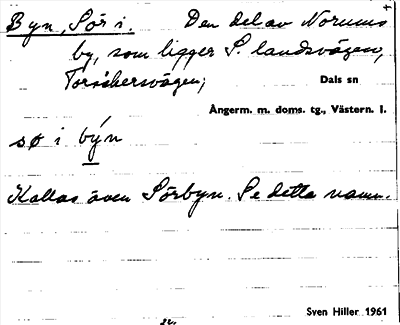 Byn, Sör i. Den del av Norums
by, som ligger S. landsvägen,
Torsåkersvägen;
Dals sn
Ångerm. m. doms. tg., Västern. l.
sø i býn
Kallas även Sörbyn. Se detta namn.
Sven Hiller 1961
22.